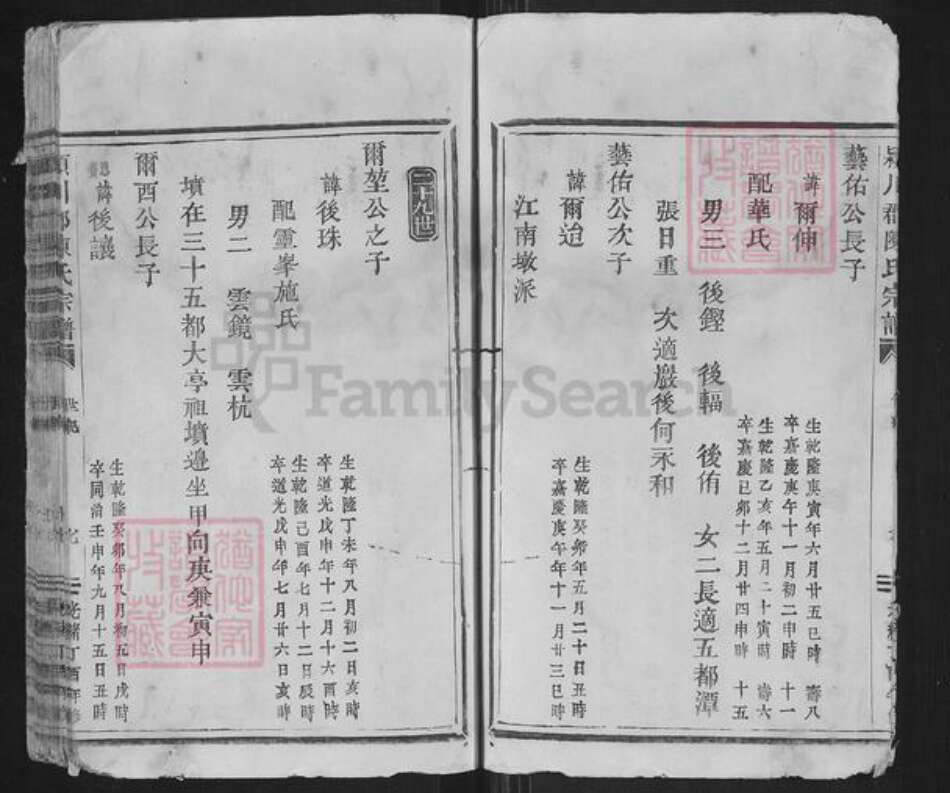 藝佑公長子
諱爾伸
生乾隆庚寅年六月廿五巳時 壽八
卒嘉慶庚午十一月初二申時 十一
配華氏
生乾隆乙亥年五月二十寅時 壽六
卒嘉慶己卯十二月廿四申時 十五
男三 後鏗 後輻 後侑 女二長適五都潭
張日重 次適巖後何永和
藝佑公次子
諱爾迨
生乾隆癸卯年五月二十日丑時
卒嘉慶庚午年十一月廿三巳時
江南墩派
三十九世
爾堃公之子
諱後珠
生乾隆丁未年八月初二日亥時
卒道光戊申年十二月十六酉時
配靈峯施氏
生乾隆己酉年七月十二日辰時
卒道光戊申年七月廿六日亥時
男二 雲鏡 雲杭
墳在三十五都大亭祖墳邊坐甲向庚兼寅申
爾酉公長子
諱後讓
生乾隆癸卯年八月初五日戌時
卒同治壬申年九月十五日丑時
光緒丁酉年修
FamilySearch